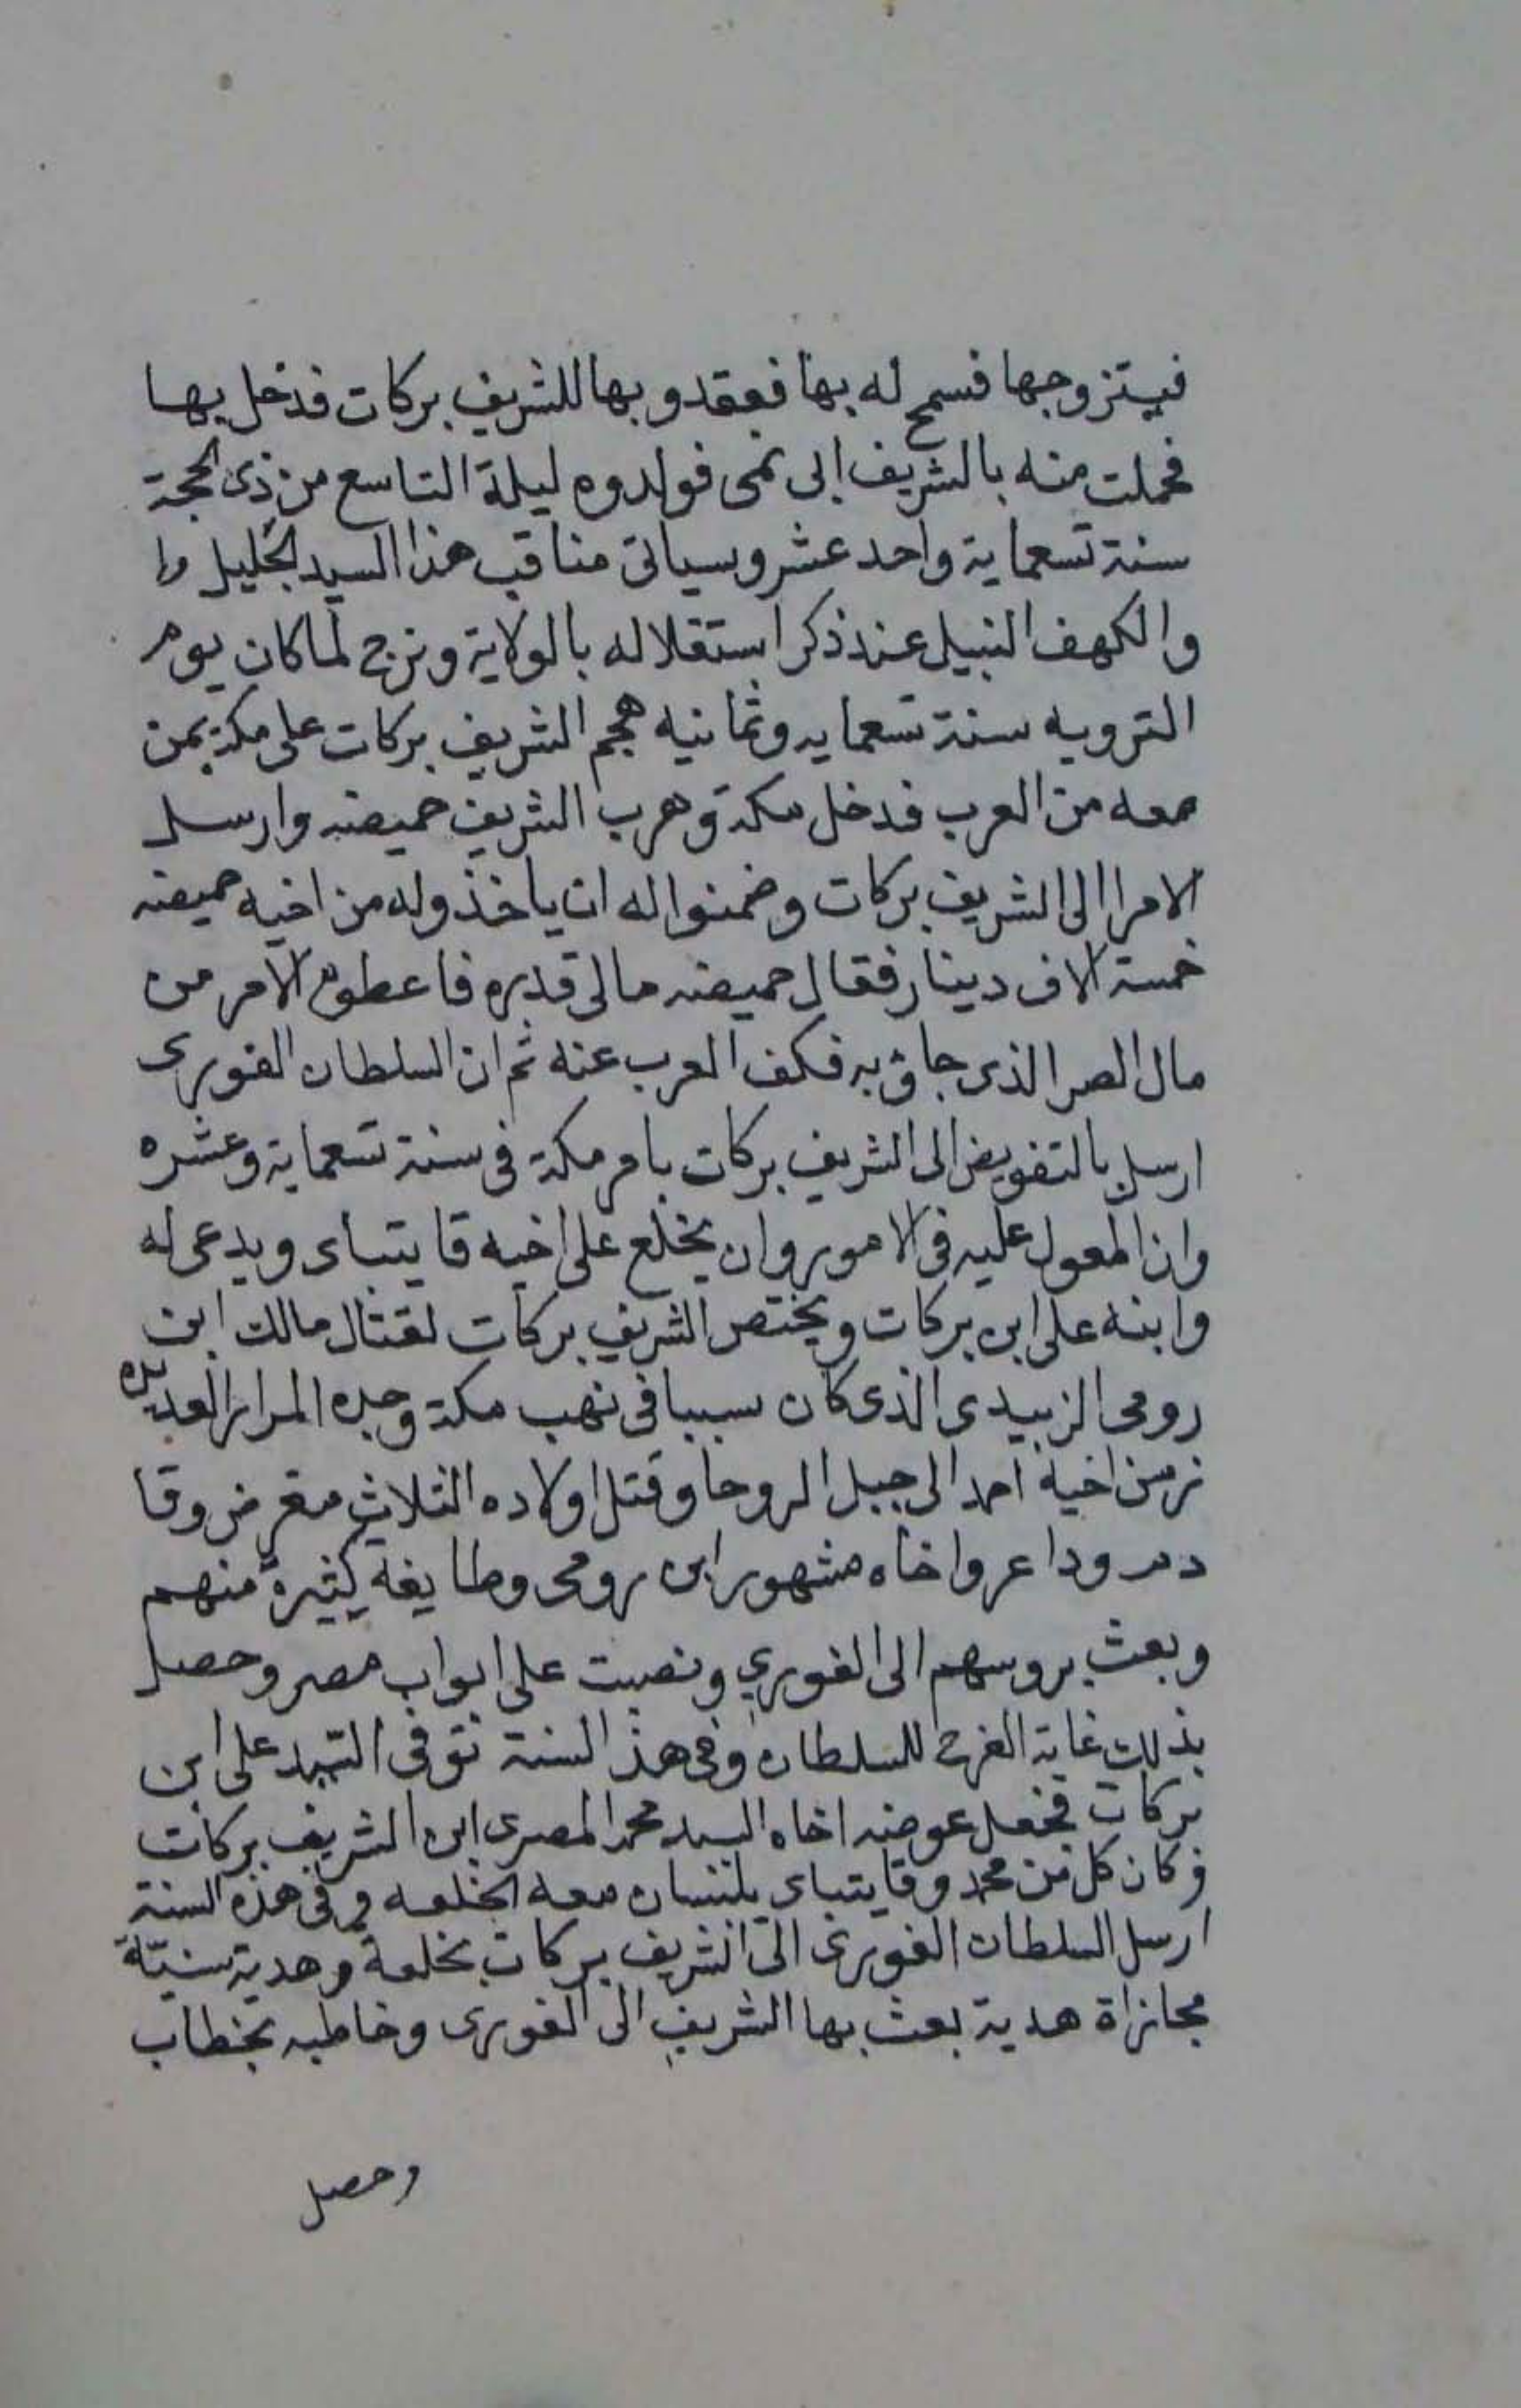 فيتزوجها فسمح له بها فعقدو بها للشريف بركات فدخل بها
فحملت منه بالشريف ابى نمى فولدوه ليلة التاسع من ذى الحجة
سنة تسعماية واحد عشر وسياتى مناقب هذا السيد الجليل وا
والكهف النبيل عند ذكر استقلاله بالولاية ونرجع لما كان يوم
الترويه سنة تسعمايه وثمانيه هجم الشريف بركات على مكة بمن
معه من العرب فدخل مكة وهرب الشريف حميضه وارسل
الامرا الى الشريف بركات وضمنوا له ان ياخذوله من اخيه حميضه
خمسة الاف دينار فقال حميضه مالى قدره فاعطوه الامر من
مال الصر الذى جاؤ به فكف العرب عنه ثم ان السلطان الغورى
ارسل بالتفويض الى الشريف بركات بامر مكة فى سنة تسعماية وعشره
وان المعول عليه فى الامور وان يخلع على اخيه قايتباى ويدعى له
وابنه على ابن بركات ويختص الشريف بركات لقتال مالك ابن
رومى الزبيدى الذى كان سببا فى نهب مكة وجده المرار العديده
زمن اخيه احمد الى جبل الروحا وقتل اولاده الثلاث وقا
وداعر واخاه مشهور ابن رومى وطايفة كثيرة منهم
وبعث بروسهم الى الغوري ونصبت على ابواب مصر وحصل
بذلك غاية الفرح للسلطان وفى هذ السنة توفى السيد على ابن
بركات فجعل عوضه اخاه السيد محمد المصرى ابن الشريف بركات
فكان كل من محمد وقايتباى يلبسان معه الخلعه وفى هذه السنة
ارسل السلطان الغورى الى الشريف بركات بخلعة وهدية سنيّة
مجازاة هدية بعث بها الشريف الى الغورى وخاطبه بخطاب
وحصل